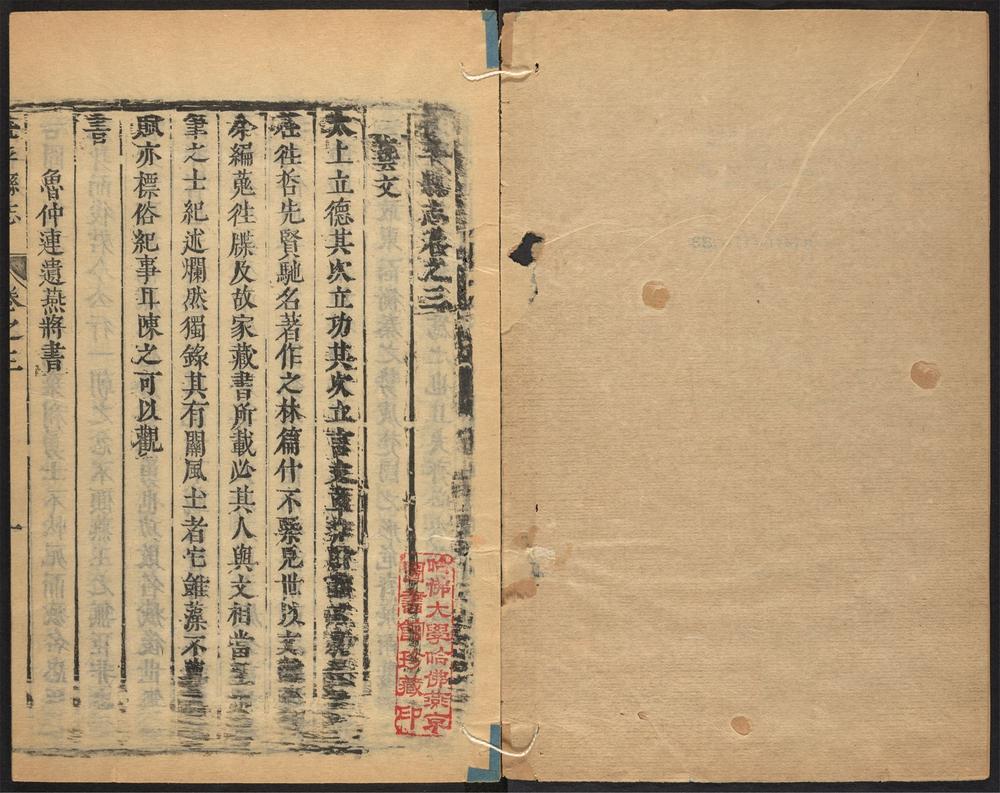 縣志卷之三
藝文
太上立德其次立功其次立言
徃徃哲先賢馳名著作之林篇什不槩見世以文
今編蒐徃牒及故家藏書所載必其人與文相當至
筆之士紀述爛然獨錄其有關風土者它雖藻不
賦亦標俗紀事耳陳之可以觀
書
魯仲連遺燕將書
平縣志 卷之三 一
哈佛大學哈佛燕京
圖書館珍藏印